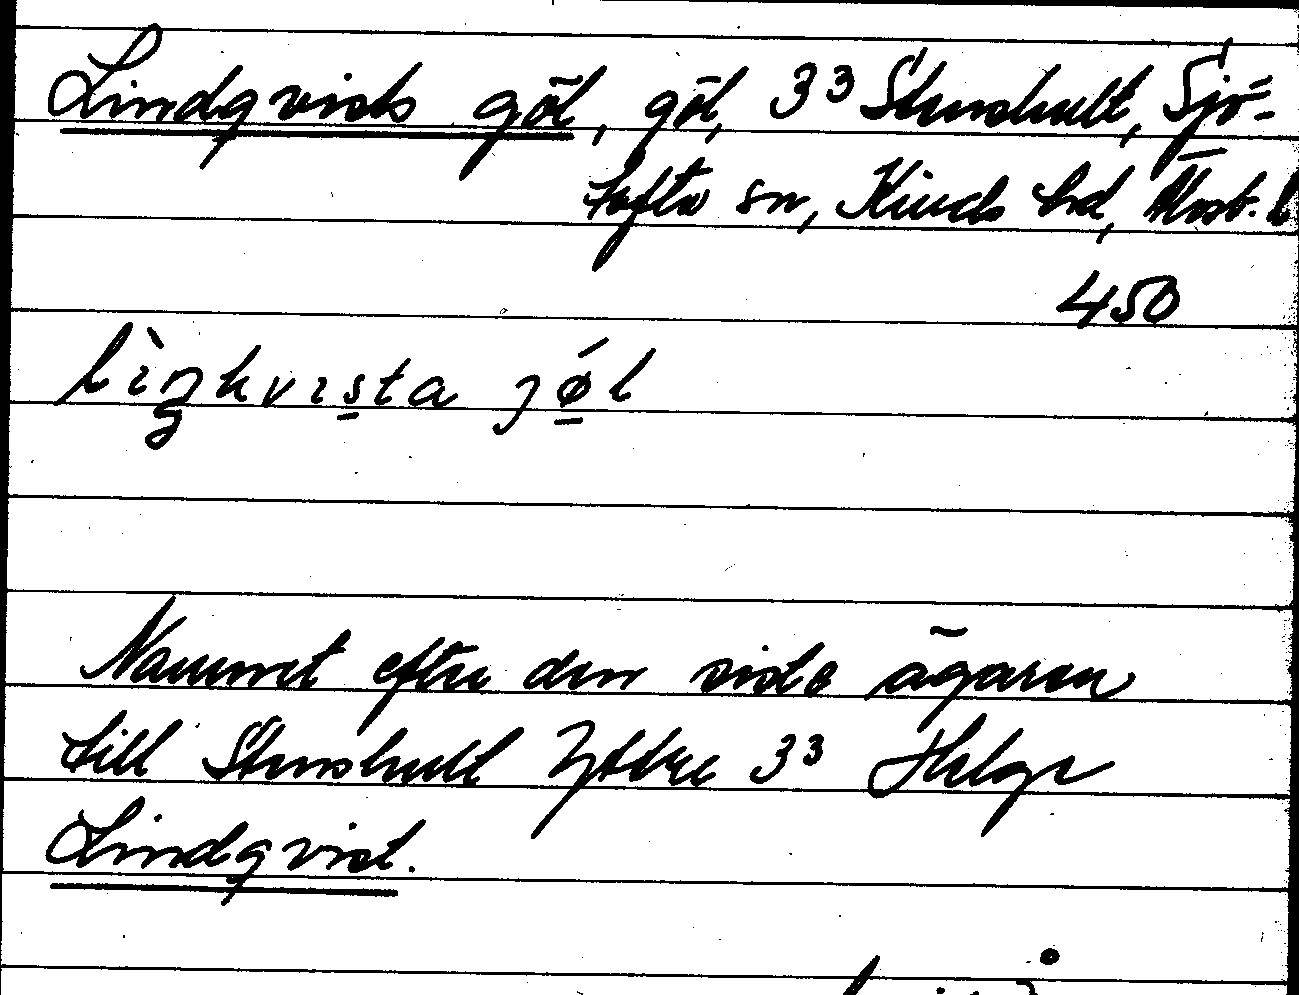 Lindqvists göl, göl, 3³ Stenshult, Sjö-
tofta sn, Kinds hd, Älvsb. l
450
lìŋkvɪsta jǿl
Namnet efter den siste ägaren
till Stenshult Yttre 3³ Helge
Lindqvist.